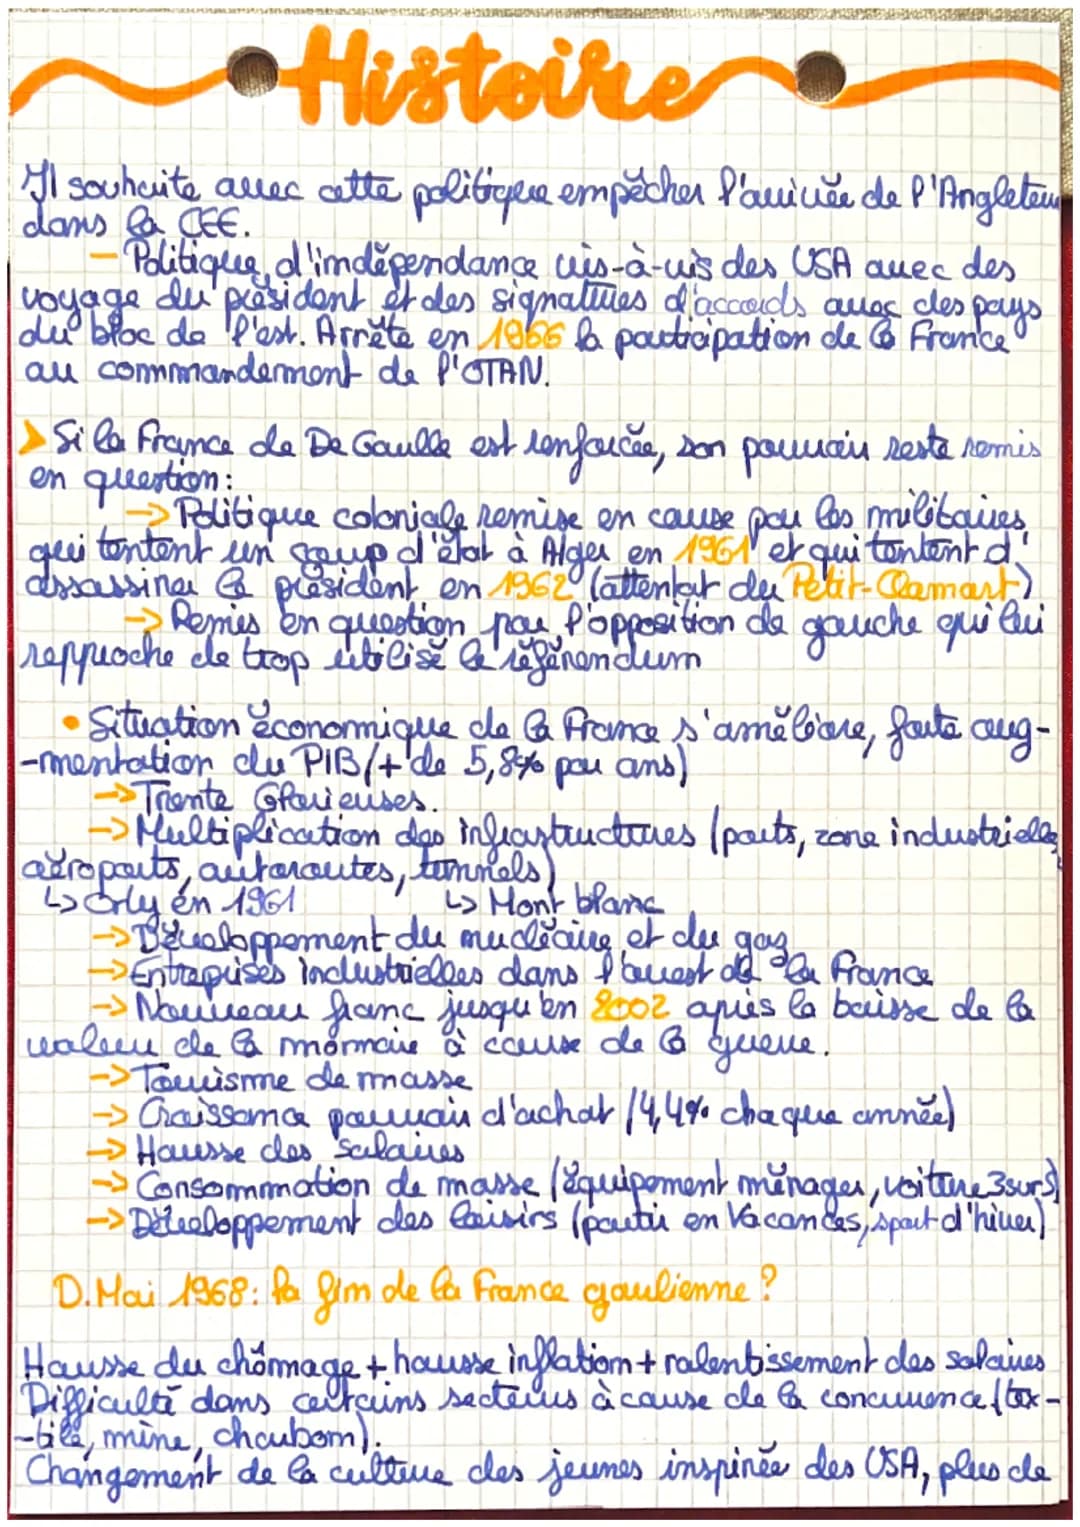 Histoire
Il souhaite avec cette politique empêcher l'arrivée de l'Angleterr
dans la CEE.
– Politique d'indépendance vis-à-vis des USA avec des
voyage du président et des signatures d'accords avec des pays
du bloc de l'est. Arrête en 1966 la participation de la France
au commandement de l'OTAN.
➤ Si la France de De Gaulle est renforcée, son pouvoir reste remis
en question:
→ Politique coloniale remise en cause par les militaires
qui tentent un coup d'état à Alger en 1961 et qui tentent d'
assassiner le président en 1962 (attentat du Petit-Clamart)
→ Remis en question par l'opposition de gauche qui lui
reproche de trop utilisé le référendum
• Situation économique de la France s'améliore, forte aug-
-mentation du PIB (+ de 5,8% par ans)
→ Trente Glorieuses.
→ Multiplication des infrastructures (ports, zone industrielle,
aéroports, autoroutes, tunnels)
↳ Orly en 1961 ↳ Mont blanc
→ Développement du nucléaire et du gaz
→ Entreprises industrielles dans l'ouest de la France
→ Nouveau franc jusqu'en 2002 après la baisse de la
valeur de la monnaie à cause de la guerre.
→ Tourisme de masse
→ Croissance pouvoir d'achat (4,4% chaque année)
→ Hausse des salaires
→ Consommation de masse (équipement ménager, voiture 3 sur 5)
→ Développement des loisirs (partir en Vacances, sport d'hiver)
D. Mai 1968: la fin de la France gaulienne ?
Hausse du chômage + hausse inflation + ralentissement des salaires
Difficulté dans certains secteurs à cause de la concurrence (tex-
-tile, mine, charbon).
Changement de la culture des jeunes inspirée des USA, plus de